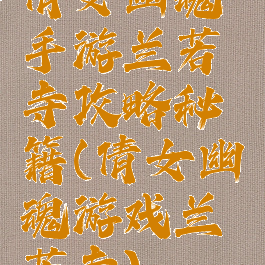 倩女幽魂
手游兰若
寺攻略秘
籍(倩女幽
魂游戏兰
若寺)